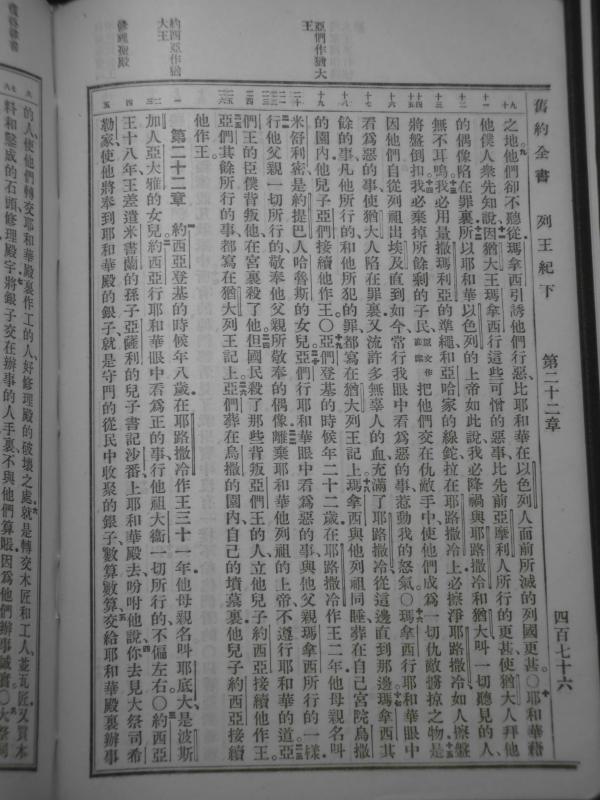 舊約全書　列王紀下　第二十二章　四百七十六
之地他們卻不聽從瑪拿西引誘他們行惡比耶和華在以色列人面前所滅的列國更甚〇耶和華藉
他僕人衆先知說因猶大王瑪拿西行這些可憎的惡事比先前亞摩利人所行的更甚使猶大人拜他
的偶像陷在罪裏所以耶和華以色列的上帝如此說我必降禍與耶路撒冷和猶大叫一切聽見的人
無不耳鳴我必用量撒瑪利亞的準繩和亞哈家的線鉈拉在耶路撒冷上必擦淨耶路撒冷如人擦盤
將盤倒扣我必棄掉所餘剩的子民原文作產業把他們交在仇敵手中使他們成爲一切仇敵擄掠之物是
因他們自從列祖出埃及直到如今常行我眼中看爲惡的事惹動我的怒氣〇瑪拿西行耶和華眼中
看爲惡的事使猶大人陷在罪裏又流許多無辜人的血充滿了耶路撒冷從這邊直到那邊瑪拿西其
餘的事凡他所行的和他所犯的罪都寫在猶大列王記上瑪拿西與他列祖同睡葬在自己宮院烏撒
的園內他兒子亞們接續他作王〇亞們登基的時候年二十二歲在耶路撒冷作王二年他母親名叫
米舒利密是約提巴人哈魯斯的女兒亞們行耶和華眼中看爲惡的事與他父親瑪拿西所行的一樣
行他父親一切所行的敬奉他父親所敬奉的偶像離棄耶和華他列祖的上帝不遵行耶和華的道亞
們王的臣僕背叛他在宮裏殺了他但國民殺了那些背叛亞們王的人立他兒子約西亞接續他作王
亞們其餘所行的事都寫在猶大列王記上亞們葬在烏撒的園內自己的墳墓裏他兒子約西亞接續
他作王
第二十二章　約西亞登基的時候年八歲在耶路撒冷作王三十一年他母親名叫耶底大是波斯
加人亞大雅的女兒約西亞行耶和華眼中看爲正的事行他祖大衞一切所行的不偏左右〇約西亞
王十八年王差遣米書蘭的孫子亞薩利的兒子書記沙番上耶和華殿去吩咐他說你去見大祭司希
勒家使他將奉到耶和華殿的銀子就是守門的從民中收聚的銀子數算數算交給耶和華殿裏辦事
亞們作猶大
王
約西亞作猶
大王
修理聖殿
的人使他們轉交耶和華殿裏作工的人好修理殿的破壞之處就是轉交木匠和工人並瓦匠又買木
料和鑿成的石頭修理殿宇將銀子交在辦事的人手裏不與他們算賬因爲他們辦事誠實〇大祭司